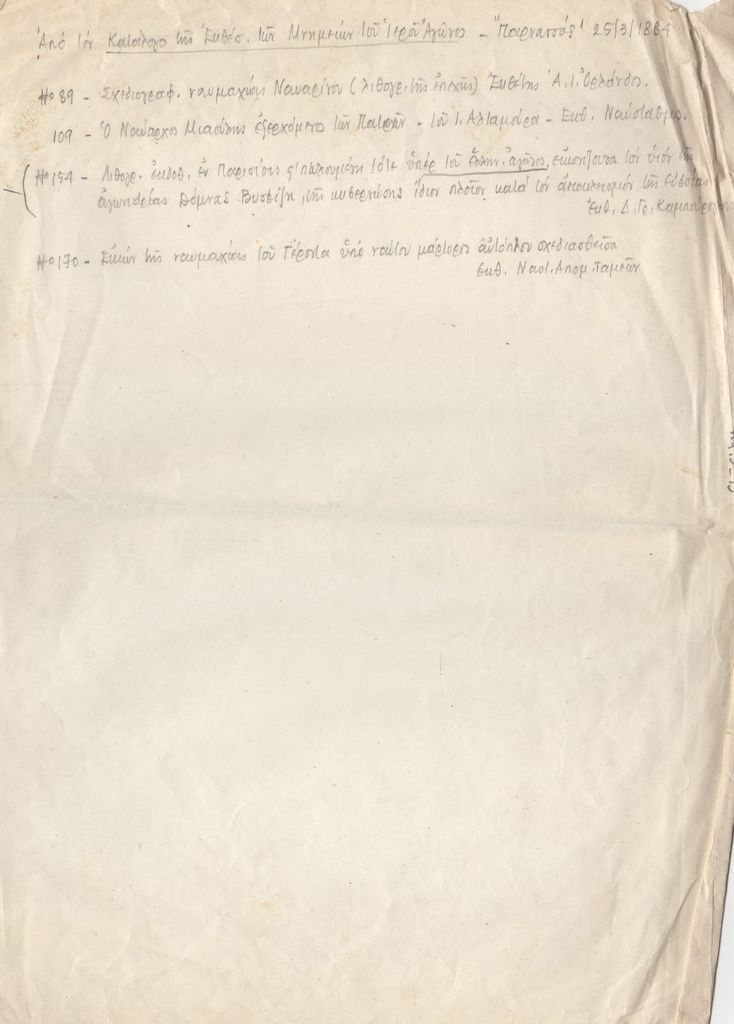 Ἀπό τόν Κατάλογο τῆς Ἐκθέσ. τῶν Μνημείων τοῦ Ἱεροῦ Ἀγῶνος - "Παρνασσός" 25/3/1884
Νο 89 - Σχεδιογραφ. ναυμαχίας Ναυαρίνου (λιθογρ. τῆς ἐποχῆς) Ἐκθέτης Ἀ. Ι. Ὀρλάνδος.
109 - Ὁ Ναύαρχος Μιαούλης ἐξερχόμενος τῶν Πατρῶν - τοῦ Ι. Αλταμούρα - Εκθ. Ναύσταθμος.
Νο 154 - Λιθογρ. ἐκδοθ. ἐν Παρισίοις πωλουμένη τότε ὑπέρ τοῦ ἑλλην. ἀγῶνος, εἰκονίζουσα τόν υἱόν τῆς
ἀγωνιστρίας Δόμνας Βισβίζη, τῆς κυβερνώσης ἴδιον πλοῖον κατά τόν ἀποκλεισμόν τῆς Εὐβοίας
Ἐκθ. Δ. Γρ. Καμπούρογλου
Νο 170 - Εἰκών τῆς ναυμαχίας τοῦ Γέροντα ὑπό ναύτου μάρτυρος αὐτόπτου σχεδιασθεῖσα
Εκθ. Ναυτ. Απομ. Ταμεῖον